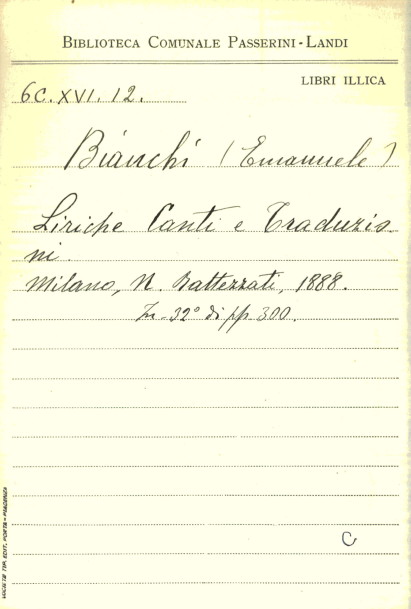 BIBLIOTECA COMUNALE PASSERINI-LANDI
LIBRI ILLICA
6C.XVI.12.
Bianchi (Emanuele)
Liriche Canti e Traduzio
ni.
Milano, N. Battezzati, 1888.
In-32° di pp. 300.
C
SOCIETÀ TIP. EDIT. PORTA - PIACENZA